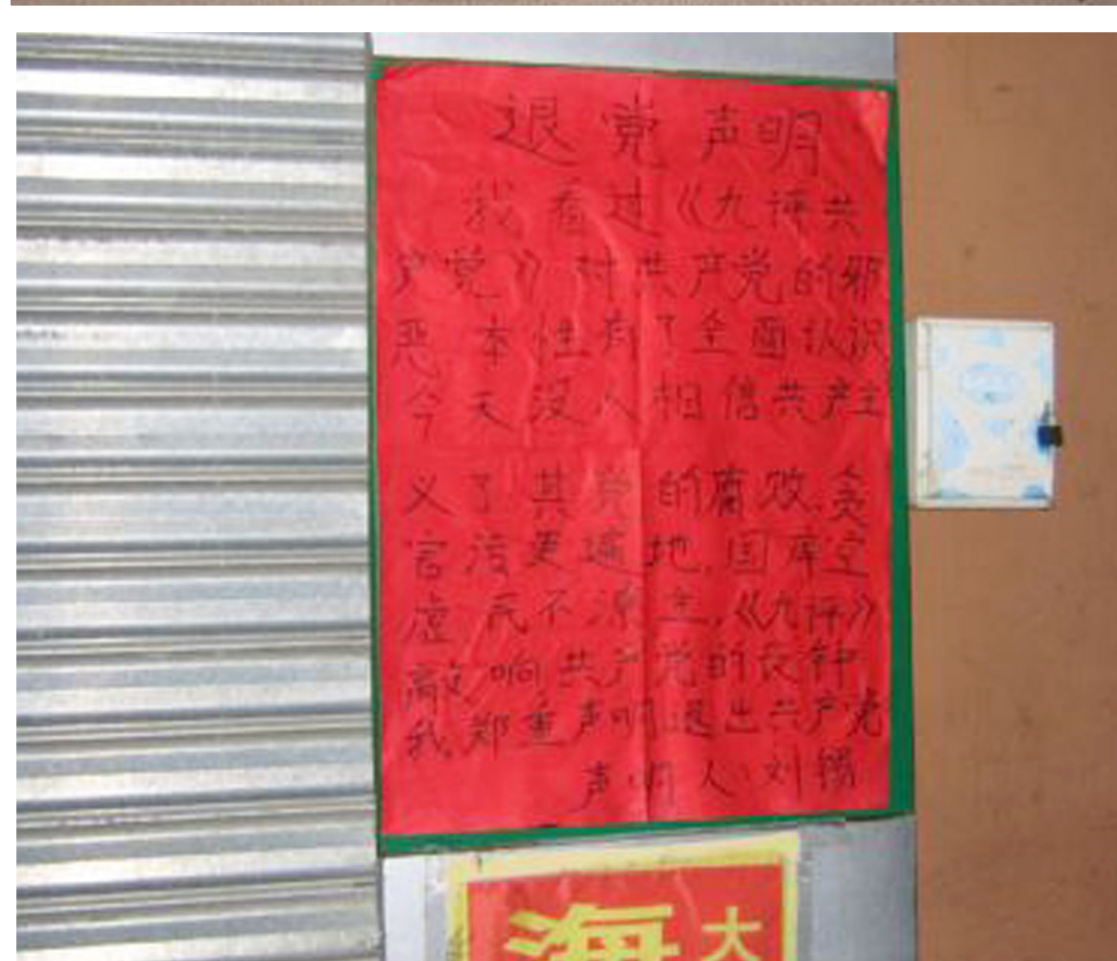 退党声明
我看过《九评共
产党》对共产党的邪
恶本性有了全面认识
今天没人相信共产主
义了其党的腐败.贪
官污吏遍地.国库空
虚民不潦生.《九评》
敲响共产党的丧钟
我郑重声明退出共产党
声明人:刘
大
海